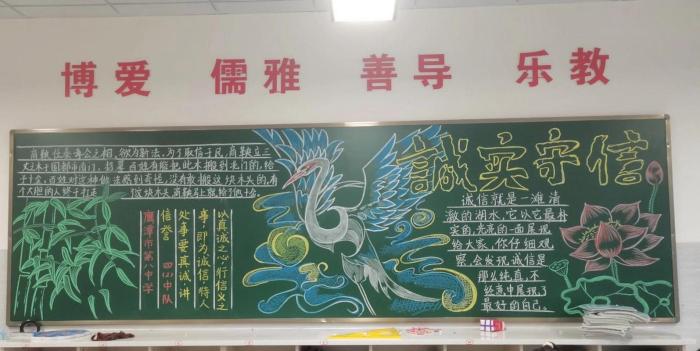 博爱 儒雅 善导 乐教
商鞅任秦孝公之相,欲为新法,为了取信于民,商鞅立三
丈之木于国都市南门,招募百姓有能把此木搬到北门的,给
予十金,百姓对这种做法感到奇怪,没有敢搬这块木头的,有
个大胆的人终于扛走
块木头,商鞅马上就给了他十金
以真诚之心,行信义之
事,即为诚信,待人
处事要真诚,讲
信誉 四(3)中队
鹰潭市第八中学
誠实守信
诚信就是一滩清
澈的湖水,它以它最朴
实的亮亮的一面展现
给大家,你仔细观
察,会发现诚信是
那么纯真,不
经意中展现了
最好的自己。